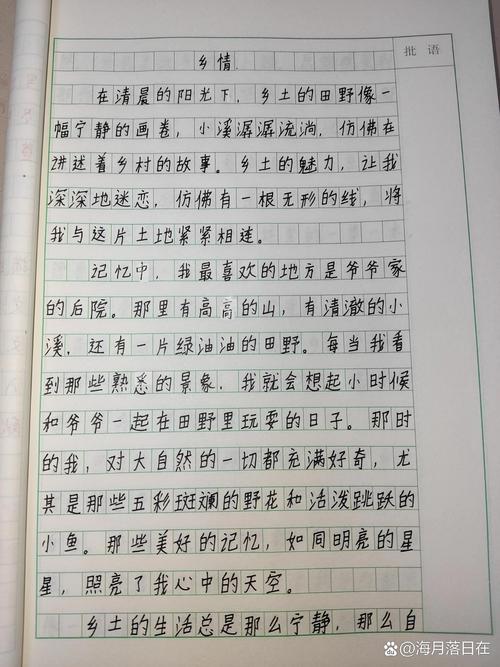 批语
乡情
在清晨的阳光下，乡土的田野像一
幅宁静的画卷，小溪潺潺流淌，仿佛在
讲述着乡村的故事。乡土的魅力，让我
深深地迷恋，仿佛有一根无形的线，将
我与这片土地紧紧相连。
记忆中，我最喜欢的地方是爷爷家
的后院。那里有高高的山，有清澈的小
溪，还有一片绿油油的田野。每当我看
到那些熟悉的景象，我就会想起小时候
和爷爷一起在田野里玩耍的日子。那时
的我，对大自然的一切都充满好奇，尤
其是那些五彩斑斓的野花和活泼跳跃的
小鱼。那些美好的记忆，如同明亮的星
星，照亮了我心中的天空。
乡土的生活总是那么宁静，那么自
@海月落日在